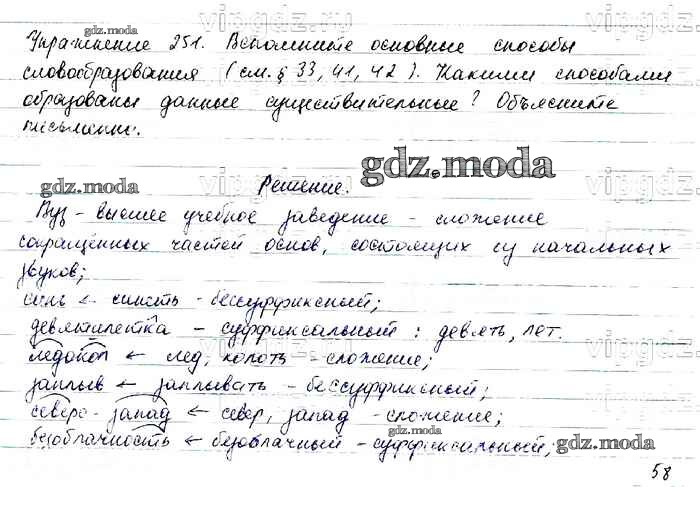 gdz.moda
vipgdz.ru
Упражнение 251. Вспомните основные способы
словообразования (см. § 33, 41, 42). Какими способами
образованы данные существительные? Объясните
письменно.
gdz.moda
gdz.moda
vipgdz
Решение.
Вуз - высшее учебное заведение - сложение
сокращённых частей основ, состоящих из начальных
звуков;
синь ← синеть - бессуффиксный;
девятилетка - суффиксальный: девять, лет.
ледокол ← лед, колоть - сложение;
заплыв ← заплывать - бессуффиксный;
северо-запад ← север, запад - сложение;
безоблачность ← безоблачный - суффиксальный;
gdz.moda
gdz.moda
58